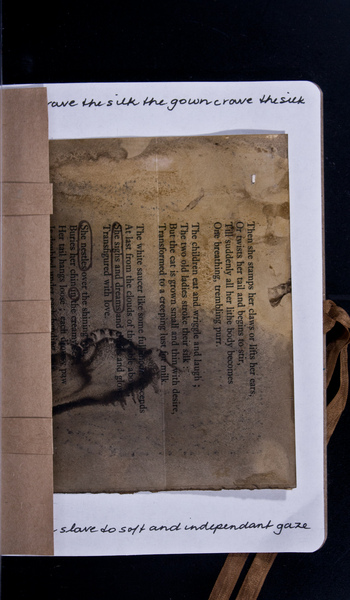 rave the silk the gown crave the silk
Then she stamps her claws or lifts her ears,
Or twists her tail and begins to stir,
Till suddenly all her lithe body becomes
One breathing, trembling purr.
The children eat and wriggle and laugh;
The two old ladies stroke their silk:
But the cat is grown small and thin with desire,
Transformed to a creeping lust for milk.
The white saucer like some full moon descends
At last from the clouds of the
She sighs and dreams and
Transfigured with love.
She nestles over the shining
Buries her chin in the creamy
Her tail hangs loose; each drowsy paw
slave to soft and independant gaze